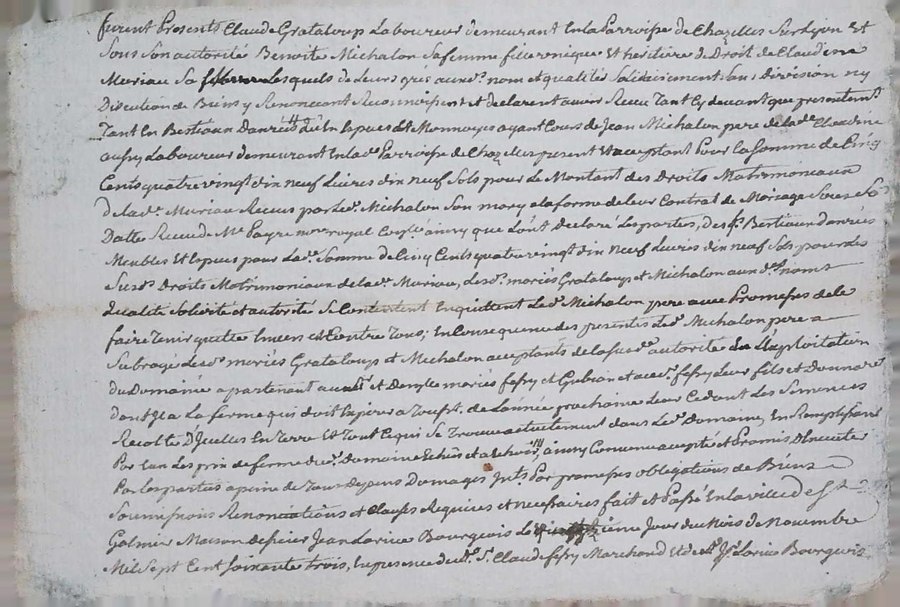 furent Presents Claude Grataloup Laboureur demeurant En la Parroisse de Chazelles Sur Lyon Et
Sous Son autorité Benoite Michalon Sa femme fille unique Et héritière de Droit de Claudine
Muriau Sa Lesquels de Leurs gres aux nom et qualités Solidairement Sans Division ny
Discution de Biens y Renonceant Reconnoissent et declarent avoir Receu Tant Cy devant que presentemt
Tant En Bestiaux Danrées qu'En Espues Et Monnoyes ayant Cours de Jean Michalon pere de lade Claudine
aussy Laboureur demeurant En lade Parroisse de Chazelles present Et acceptant Pour la Somme de Cinq
Cents quatre vingt dix neuf Livres dix neuf Sols pour Le Montant des Droits Matrimoniaux
De lade Muriau Receus par Led. Michalon Son mary a la forme de leur Contrat de Mariage Sous Sa
Datte Receu de Me Payre nore royal ainsy que L'ont Declaré Les parties, Des Bestiaux danrées
Meubles Et Espues pour lade Somme de Cinq Cents quatre vingt dix neuf Livres dix neuf Sols pour Les
Susds Droits Matrimoniaux de lade Muriau, Lesds mariés Grataloup et Michalon aux ds noms
qualité Solidité et autorité Se Contentent En quittent Led. Michalon pere avec Promesses de le
faire Tenir quitte Envers et Contre Tous; En Consequence des presentes Led. Michalon pere a
Subrogé Lesds mariés Grataloup et Michalon acceptants de la susde autorité a L'Exploitation
du Domaine apartenant aux et mariés fessy et Gubian et a fessy Leur fils et Donnare
dont Il a La ferme qui doit Expirer a Toussts de L'année prochaine Leur Cedant Les Semences
Recolte D'Icelles En Terre Et Tout Ce qui Se Trouve actuellement dans Led. Domaine, En Remplissant
Par Eux Les prix de ferme dud. Domaine Echus et a Echoir, ainsy Convenu accepté et Promis D'Executer
Par Les parties a peine de Tous Depens Domages Par promesses obligations de Biens
Soumissions Renonciations et Clauses Requises et necessaires fait et Passé En la ville de St
Galmier Maison de sieur Jean Lorice Bourgeois Le Jour du Mois de Novembre
Mil Sept Cent Soixante Trois, En presence de Sr Claude fessy Marchand Et de Jn Lorice Bourgeois